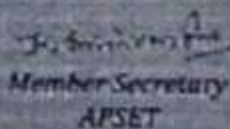 Member Secretary
APSET